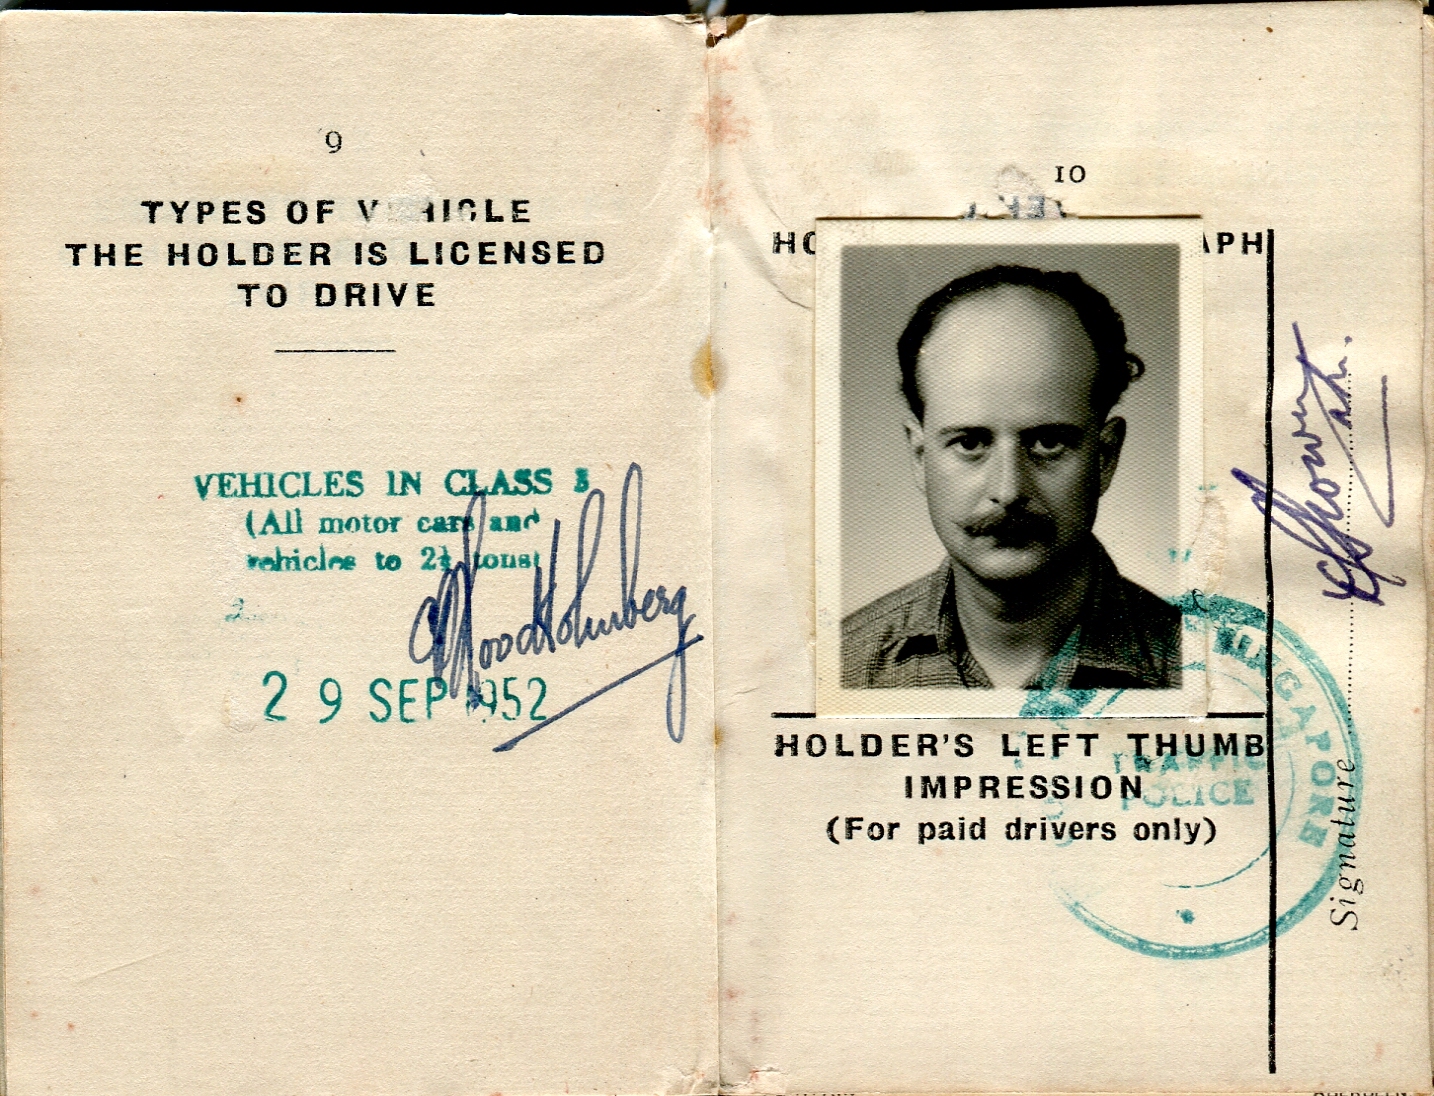 9
TYPES OF VEHICLE
THE HOLDER IS LICENSED
TO DRIVE
VEHICLES IN CLASS 3
(All motor cars and
vehicles to 2½ tons)
29 SEP 1952
10
HO APH
HOLDER'S LEFT THUMB
IMPRESSION
(For paid drivers only)
SINGAPORE
TRAFFIC
POLICE
Signature